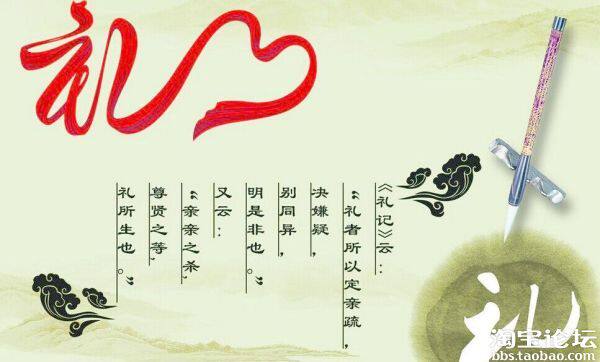 礼
《礼记》云：
“礼者所以定亲疏，
决嫌疑，
别同异，
明是非也。”
又云：
“亲亲之杀，
尊贤之等，
礼所生也。”
礼
淘宝论坛
bbs.taobao.com